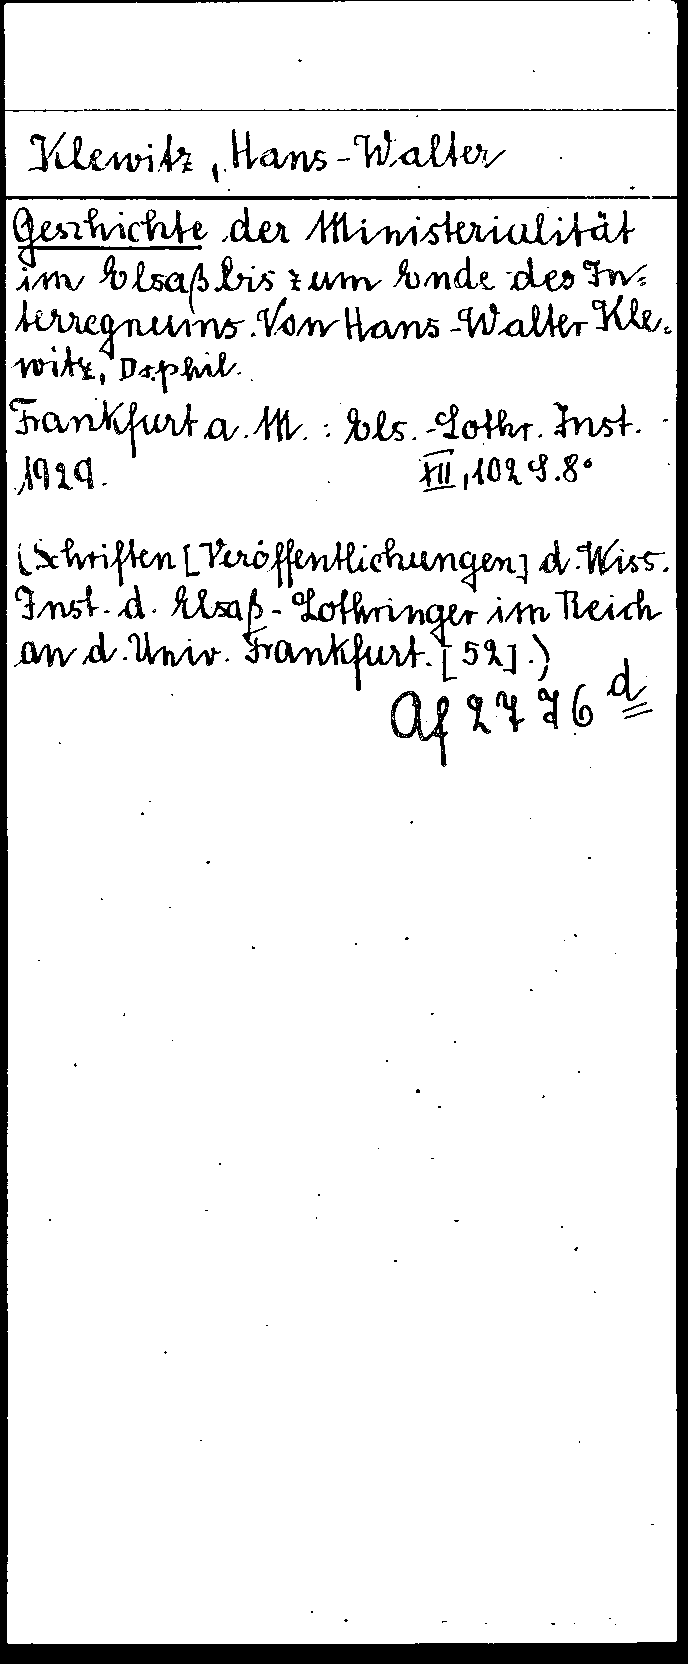 Klewitz, Hans-Walter
Geschichte der Ministerialität
im Elsaß bis zum Ende des In-
terregnums. Von Hans-Walter Kle-
witz, Dr. phil.
Frankfurt a. M. : Els.-Lothr. Inst.
1929. XII, 102 S. 8°
(Schriften [Veröffentlichungen] d. Wiss.
Inst. d. Elsaß-Lothringer im Reich
an d. Univ. Frankfurt. [52].)
Af 2776 d